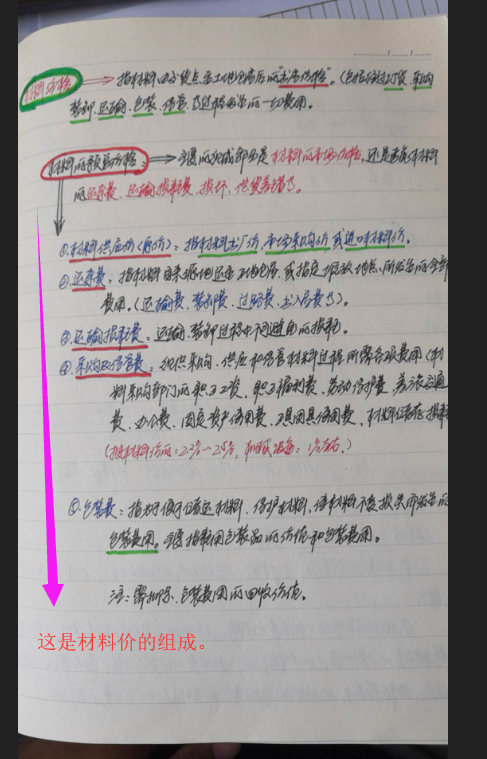 材料价格 指材料由交货点至工地仓库后的"出库价格"。(包括材料订货、采购
装卸、运输、包装、保管、等过程发生的一切费用。
材料的预算价格: 主要的组成部分是材料的市场价格,还是要有材料
的运杂费、运输损耗费、损坏、供货差错等。
①.材料供应价(原价):指材料出厂价、市场采购价或进口材料价。
②.运杂费:指材料自来源地运至工地仓库、或指定堆放地点、所发生的全部
费用。(运输费、装卸费、过路费、出入库费等)。
③.运输损耗费:运输装卸过程中不可避免的损耗。
④.采购及保管费:组织采购、供应和保管材料过程所需各项费用(材
料采购部门的职工工资、职工福利费、劳动保护费、差旅交通
费、办公费、固定资产使用费、工具用具使用费、材料储存损耗
(按材料价的:2.2%~2.4%,机械设备:1%左右。)
⑤.包装费:指为了便于储运材料、保护材料、使材料不受损失而发生的
包装费用。主要指耗用包装品的价值和包装费用。
注:需扣除、包装费用的回收价值。
这是材料价的组成。